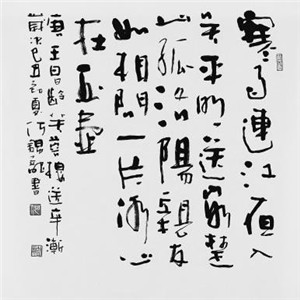 寒雨連江夜入
吴平明送客楚
山孤洛陽親友
如相問一片冰心
在玉壺
唐王昌齡芙蓉樓送辛漸
歲次己丑初夏書